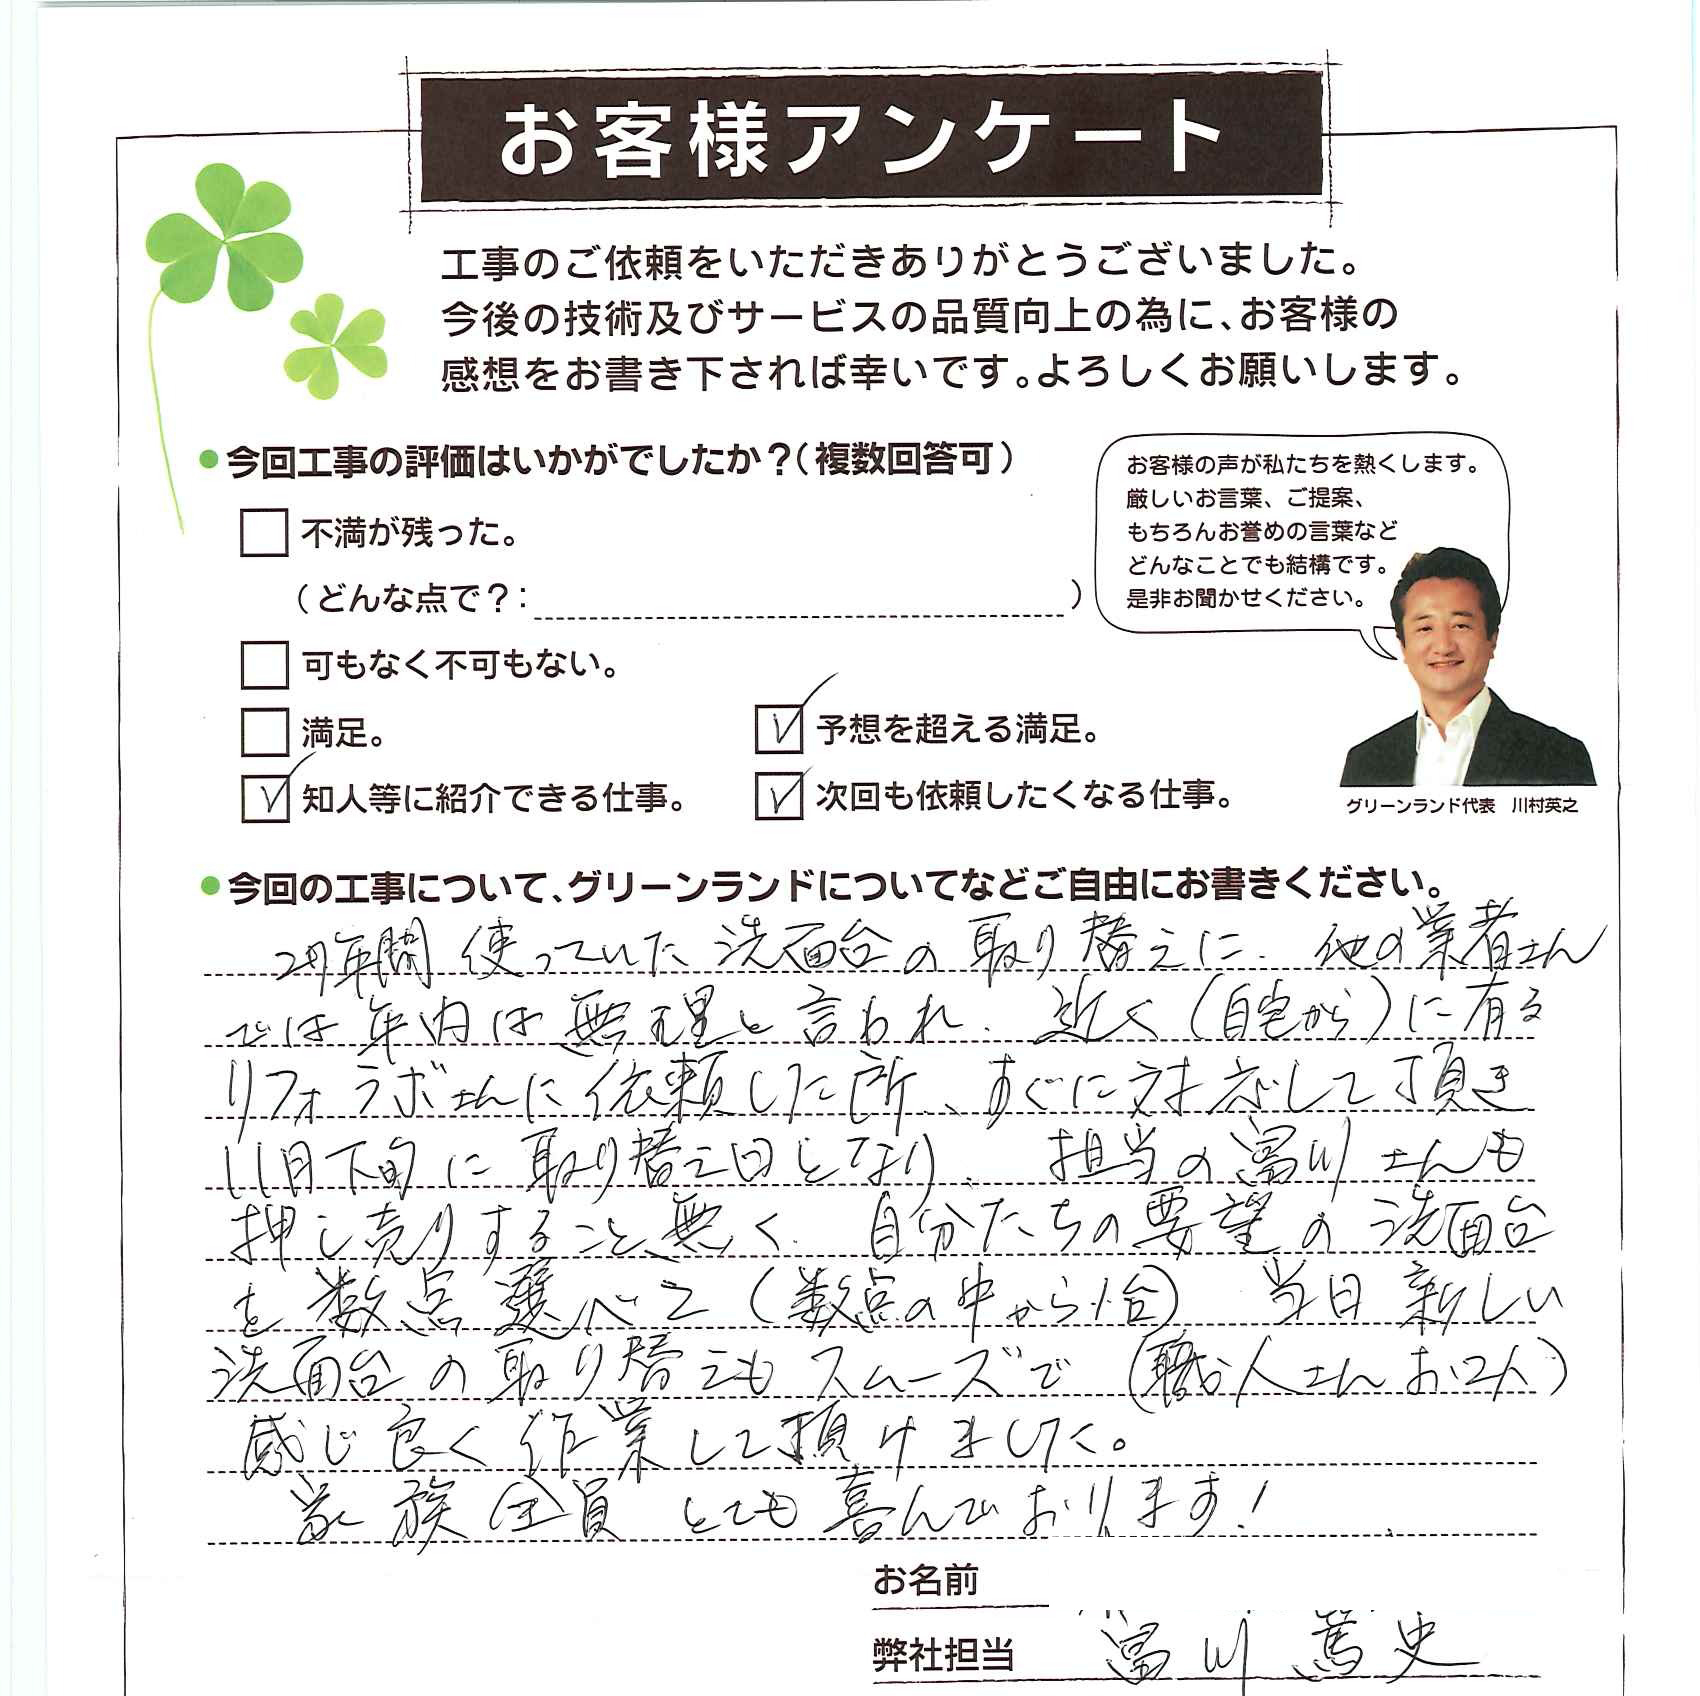 お客様アンケート
工事のご依頼をいただきありがとうございました。
今後の技術及びサービスの品質向上の為に、お客様の
感想をお書き下されば幸いです。よろしくお願いします。
●今回工事の評価はいかがでしたか？（複数回答可）
不満が残った。
（どんな点で？：　）
可もなく不可もない。
満足。
予想を超える満足。
知人等に紹介できる仕事。
次回も依頼したくなる仕事。
お客様の声が私たちを熱くします。
厳しいお言葉、ご提案、
もちろんお誉めの言葉など
どんなことでも結構です。
是非お聞かせください。
グリーンランド代表　川村英之
●今回の工事について、グリーンランドについてなどご自由にお書きください。
年間使っていた洗面台の取り替えに、他の業者さん
では年内は無理と言われ、近く（自宅から）に有る
リフォラボさんに依頼した所、すぐに対応して頂き
11月下旬に取り替え日となり、担当の冨川さんも
押し売りすること無く、自分たちの要望の洗面台
を数点選べて（数点の中から1台）当日新しい
洗面台の取り替えもスムーズで（職人さんお2人）
感じ良く作業して頂けました。
家族全員とても喜んでおります！
お名前
弊社担当　冨川篤史